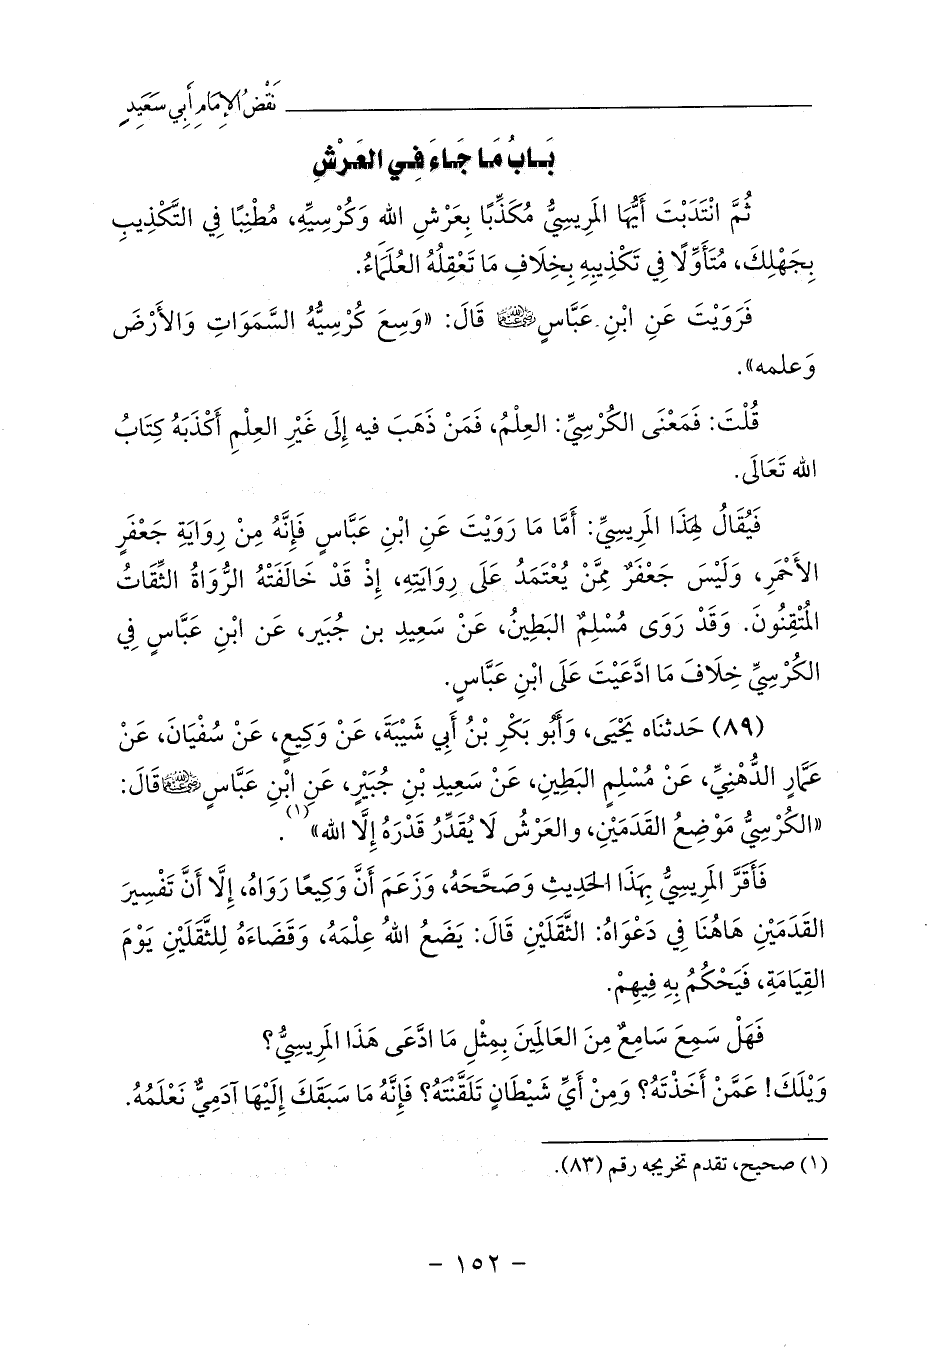 نَقْضُ الإِمَامِ أَبِي سَعِيدٍ
بَابُ مَا جَاءَ فِي العَرْشِ
ثُمَّ انْتَدَبْتَ أَيُّهَا المَرِيسِيُّ مُكَذِّبًا بِعَرْشِ الله وَكُرْسِيِّهِ، مُطْنِبًا فِي التَّكْذِيبِ
بِجَهْلِكَ، مُتَأَوِّلًا فِي تَكْذِيبِهِ بِخِلَافِ مَا تَعْقِلُهُ العُلَمَاءُ.
فَرَوَيْتَ عَنِ ابْنِ عَبَّاسٍ ﵁ قَالَ: «وَسِعَ كُرْسِيُّهُ السَّمَوَاتِ وَالأَرْضَ
وَعلمه».
قُلْتَ: فَمَعْنَى الكُرْسِيِّ: العِلْمُ، فَمَنْ ذَهَبَ فيه إِلَى غَيْرِ العِلْمِ أَكْذَبَهُ كِتَابُ
الله تَعَالَى.
فَيُقَالُ لِهَذَا المَرِيسِيِّ: أَمَّا مَا رَوَيْتَ عَنِ ابْنِ عَبَّاسٍ فَإِنَّهُ مِنْ رِوَايَةِ جَعْفَرٍ
الأَحْمَرِ، وَلَيْسَ جَعْفَرٌ مِمَّنْ يُعْتَمَدُ عَلَى رِوَايَتِهِ، إِذْ قَدْ خَالَفَتْهُ الرُّوَاةُ الثِّقَاتُ
المُتْقِنُونَ. وَقَدْ رَوَى مُسْلِمٌ البَطِينُ، عَنْ سَعِيدِ بن جُبَير، عَن ابْنِ عَبَّاسٍ فِي
الكُرْسِيِّ خِلَافَ مَا ادَّعَيْتَ عَلَى ابْنِ عَبَّاسٍ.
(٨٩) حَدثنَاه يَحْيَى، وَأَبُو بَكْرِ بْنُ أَبِي شَيْبَةَ، عَنْ وَكِيعٍ، عَنْ سُفْيَانَ، عَنْ
عَمَّارٍ الدُّهْنِيِّ، عَنْ مُسْلِمٍ البَطِينِ، عَنْ سَعِيدِ بْنِ جُبَيْرٍ، عَنِ ابْنِ عَبَّاسٍ ﵁ قَالَ:
«الكُرْسِيُّ مَوْضِعُ القَدَمَيْنِ، والعَرْشُ لَا يُقَدِّرُ قَدْرَهُ إِلَّا الله»(١).
فَأَقَرَّ المَرِيسِيُّ بِهَذَا الحَدِيثِ وَصَحَّحَهُ، وَزَعَمَ أَنَّ وَكِيعًا رَوَاهُ، إِلَّا أَنَّ تَفْسِيرَ
القَدَمَيْنِ هَاهُنَا فِي دَعْوَاهُ: الثَّقَلَيْنِ قَالَ: يَضَعُ اللهُ عِلْمَهُ، وَقَضَاءَهُ لِلثَّقَلَيْنِ يَوْمَ
القِيَامَةِ، فَيَحْكُمُ بِهِ فِيهِمْ.
فَهَلْ سَمِعَ سَامِعٌ مِنَ العَالَمِينَ بِمِثْلِ مَا ادَّعَى هَذَا المَرِيسِيُّ؟
وَيْلَكَ! عَمَّنْ أَخَذْتَهُ؟ وَمِنْ أَيِّ شَيْطَانٍ تَلَقَّنْتَهُ؟ فَإِنَّهُ مَا سَبَقَكَ إِلَيْهَا آدَمِيٌّ نَعْلَمُهُ.
(١) صحيح، تقدم تخريجه رقم (٨٣).
- ١٥٢ -